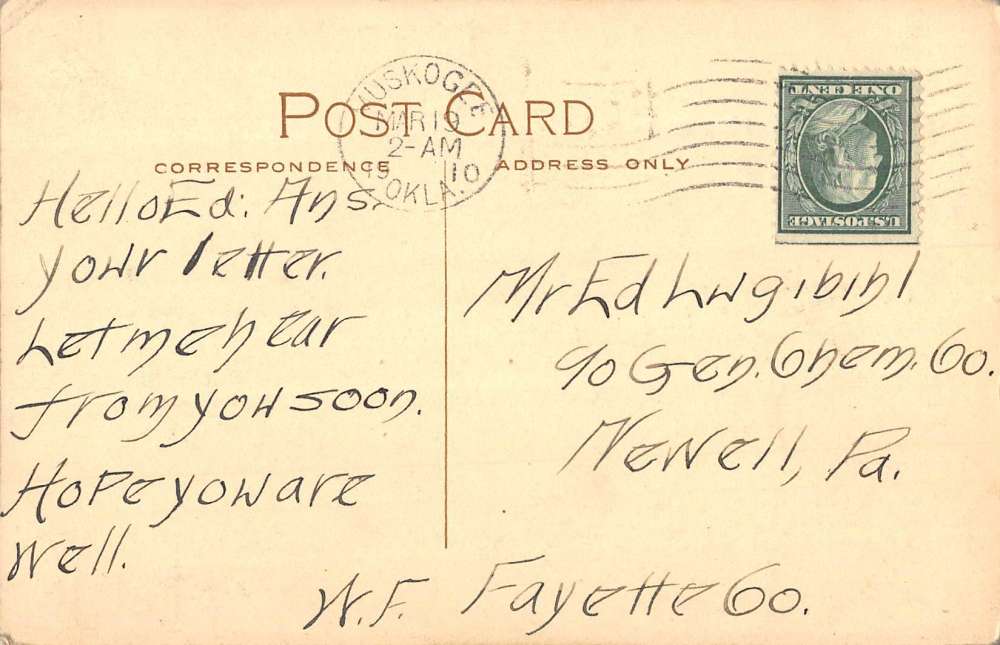 POST CARD
CORRESPONDENCE
ADDRESS ONLY
MUSKOGEE
MAR 19
2-AM
19 10
OKLA.
U.S. POSTAGE
ONE CENT
Hello Ed: Ans.
your letter.
Let me hear
from you soon.
Hope you are
well.
W.F.
Mr Ed Lugibihl
c/o Gen. Chem. Co.
Newell, Pa.
Fayette Co.